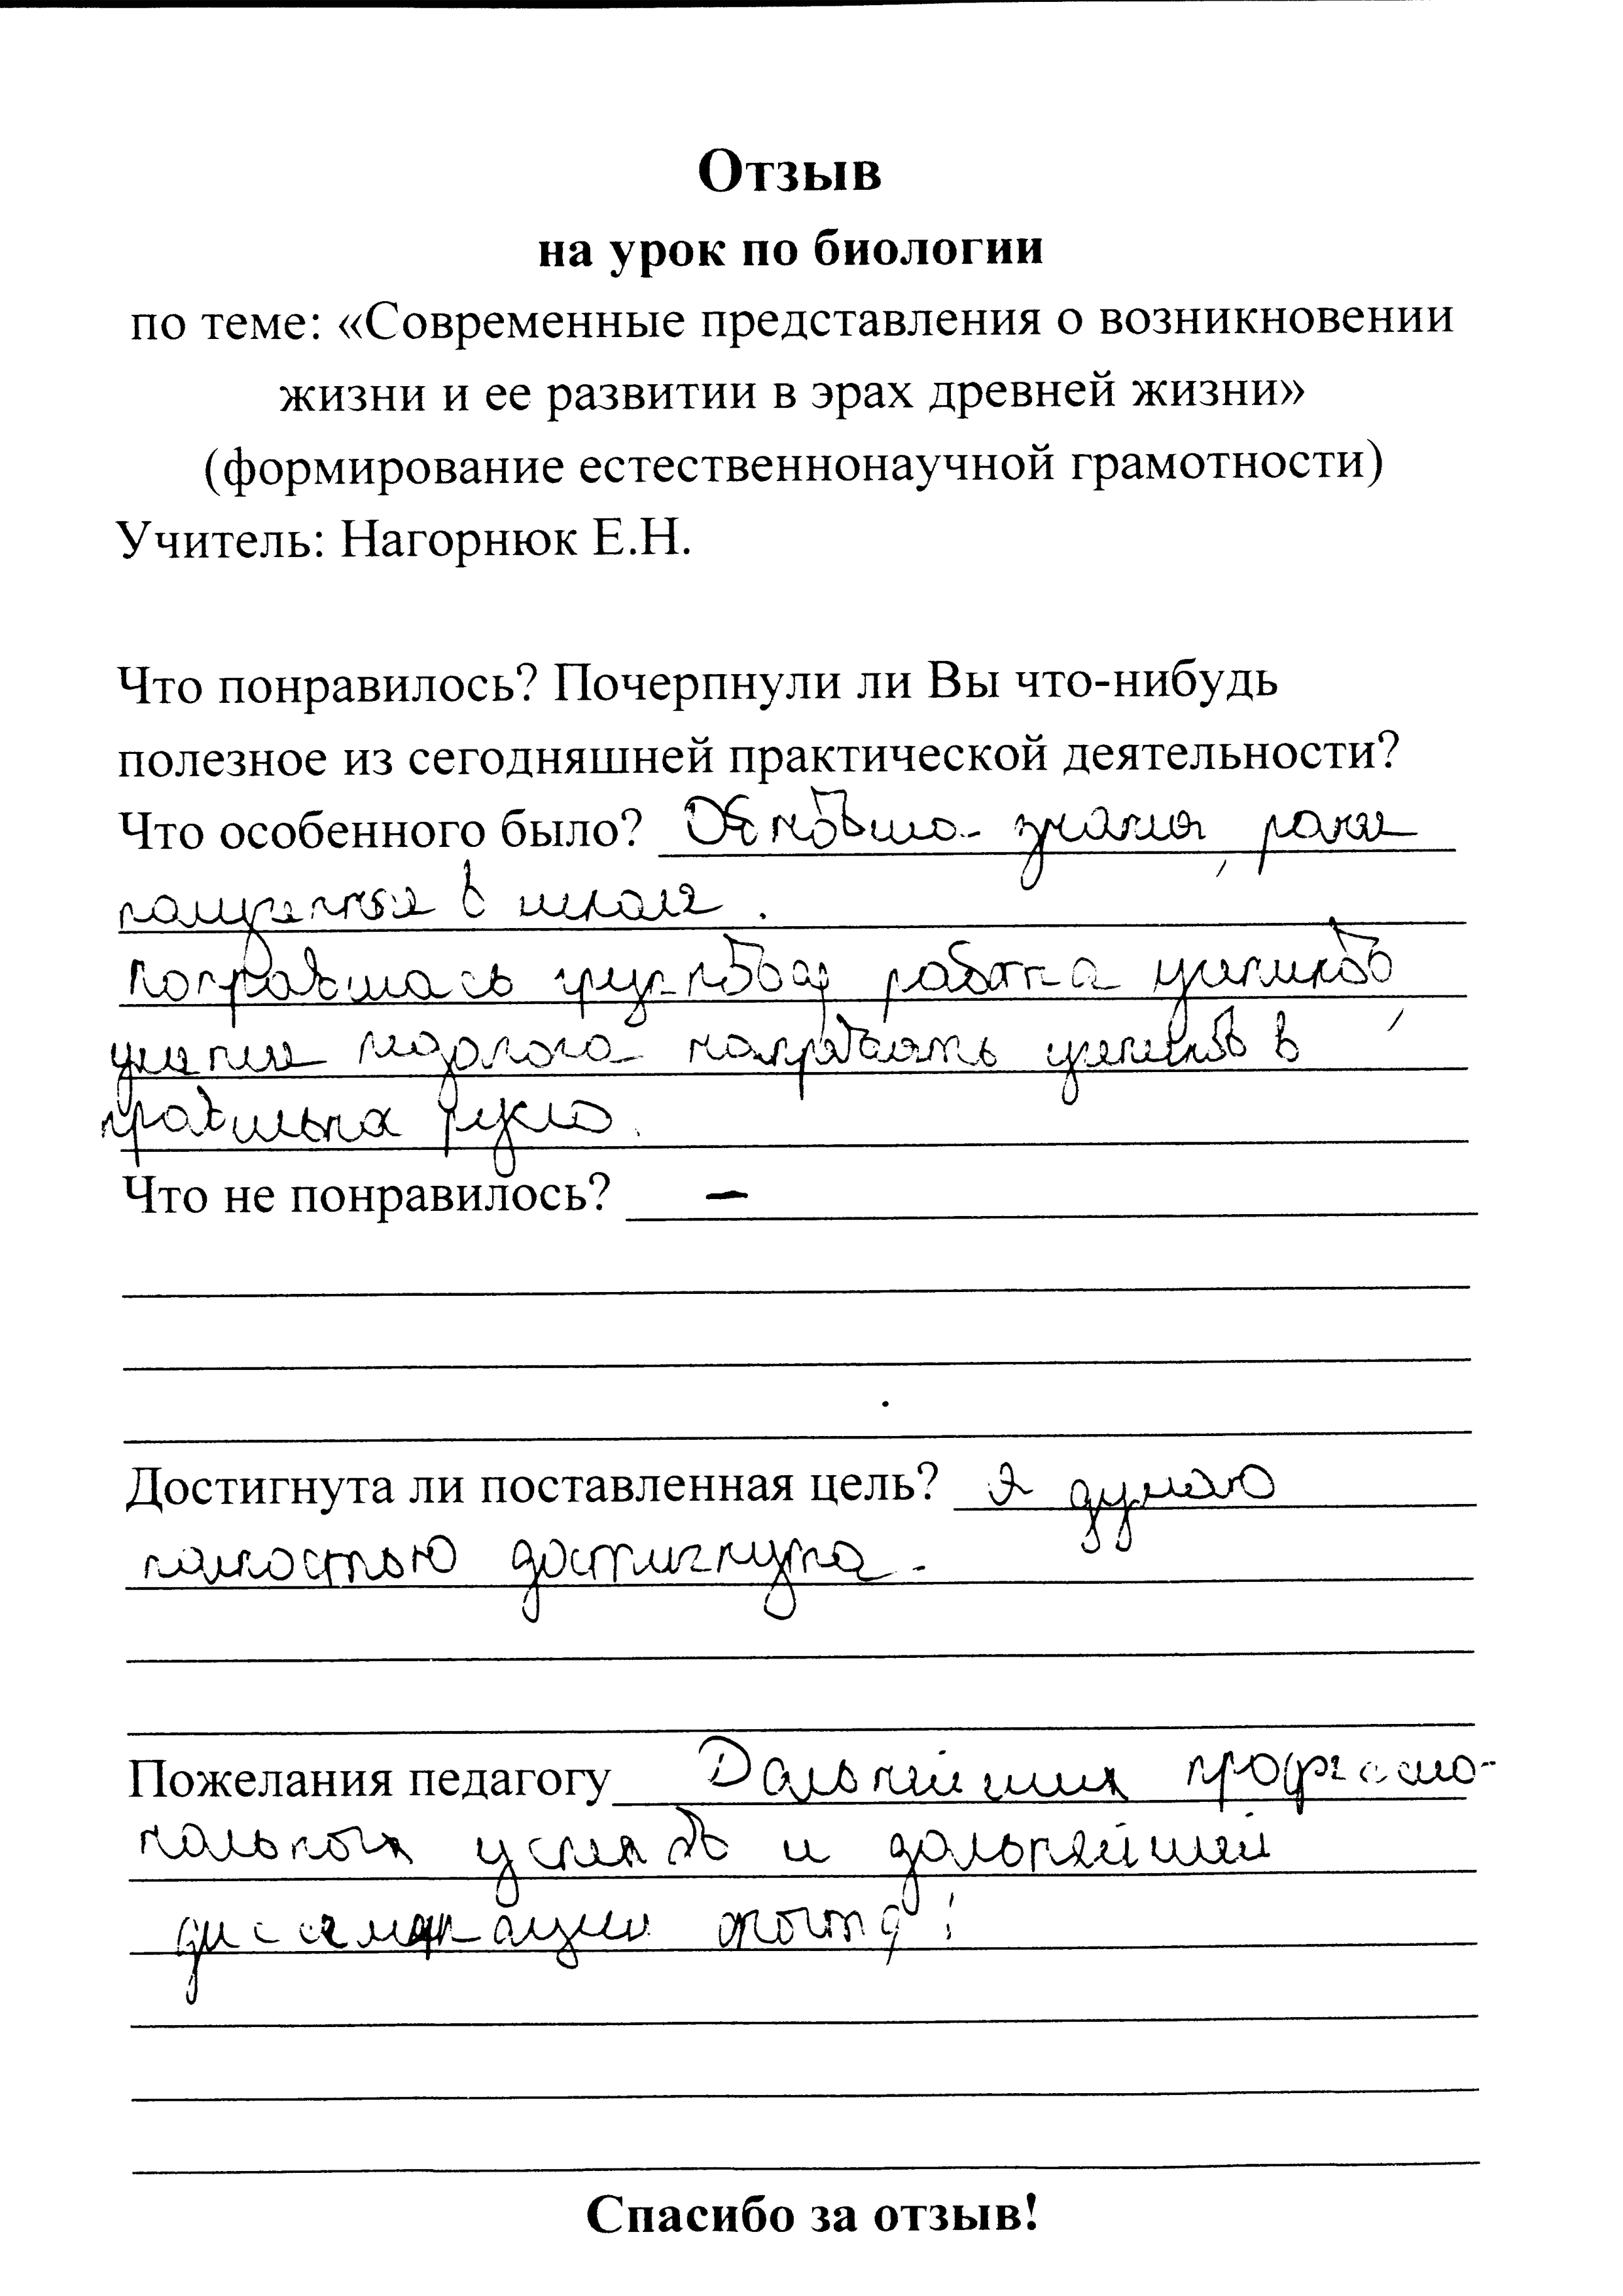 Отзыв
на урок по биологии
по теме: «Современные представления о возникновении
жизни и ее развитии в эрах древней жизни»
(формирование естественнонаучной грамотности)
Учитель: Нагорнюк Е.Н.
Что понравилось? Почерпнули ли Вы что-нибудь
полезное из сегодняшней практической деятельности?
Что особенного было? Обновила знания, ранее
полученные в школе.
Понравилась групповая работа учеников,
умение педагога направлять учеников в
правильное русло.
Что не понравилось? –
Достигнута ли поставленная цель? Я думаю
полностью достигнута.
Пожелания педагогу Дальнейших професссио-
нальных успехов и дальнейшей
диссеминации опыта!
Спасибо за отзыв!